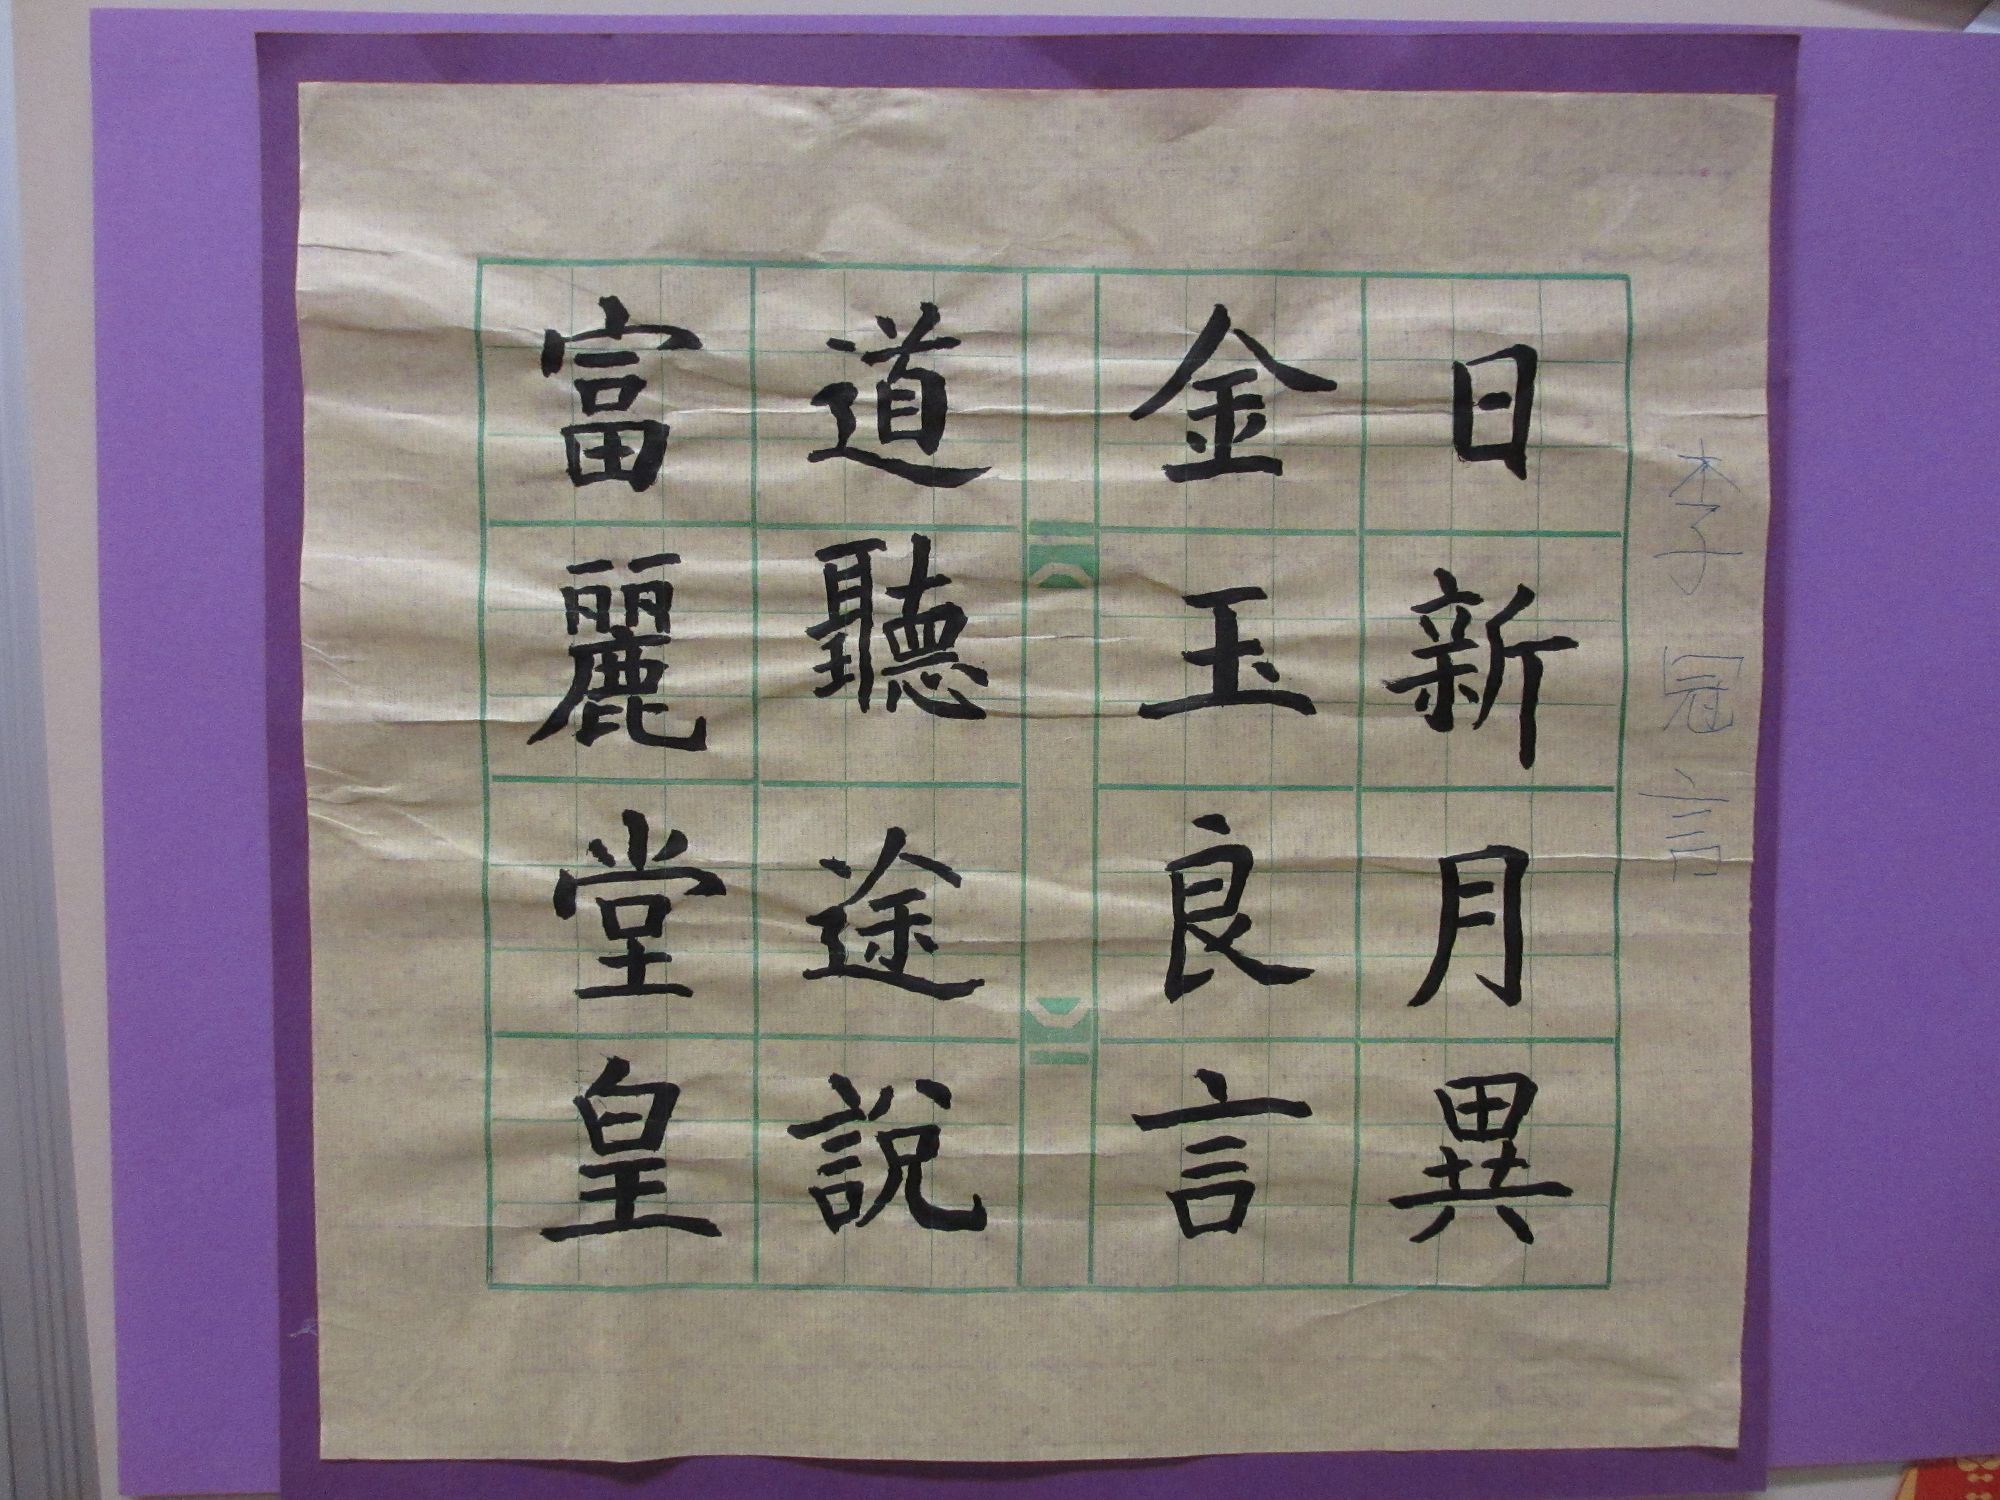 李冠言
日新月異
金玉良言
道聽途說
富麗堂皇